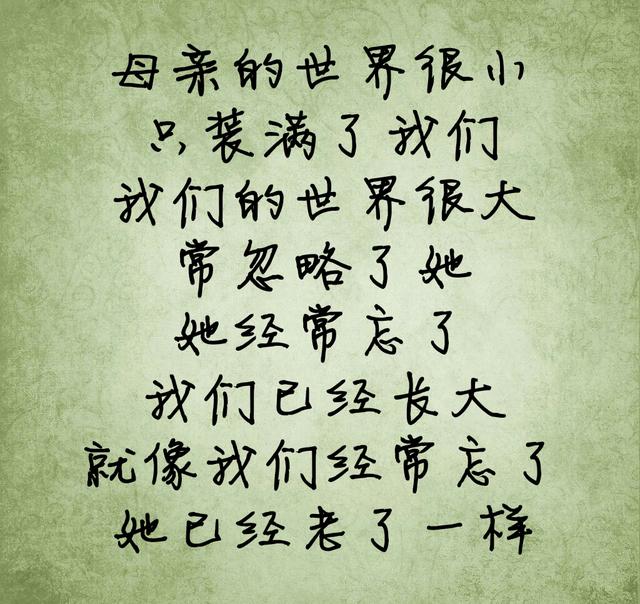 母亲的世界很小
只装满了我们
我们的世界很大
常忽略了她
她经常忘了
我们已经长大
就像我们经常忘了
她已经老了一样